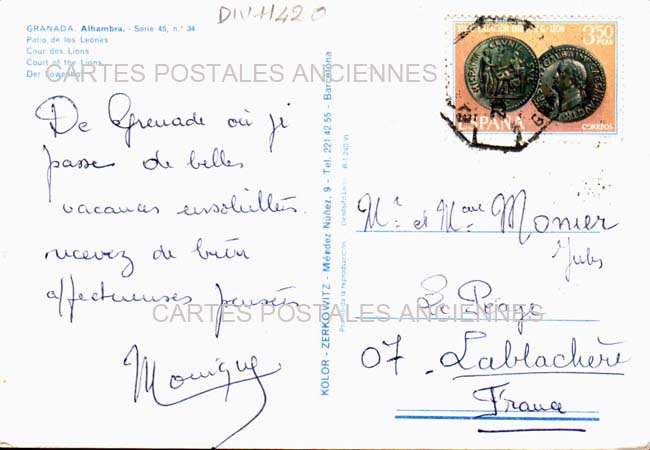 DIV-11420
GRANADA. Alhambra. - Serie 45, n.° 34
Patio de los Leones
Cour des Lions
Court of the Lions
CARTES POSTALES ANCIENNES
De Grenade où je
passe de belles
vacances ensoleillées
recevez de bien
affectueuses pensées
Monique
KOLOR - ZERKOWITZ - Méndez Núñez, 9 - Tel. 221 42 55 - Barcelona
Prohibida la reproducción
3,50
PTAS
ESPAÑA
CORREOS
Mr et Mme Monier
Jules
Le
07. Lablachère
France
CARTES POSTALES ANCIENNES